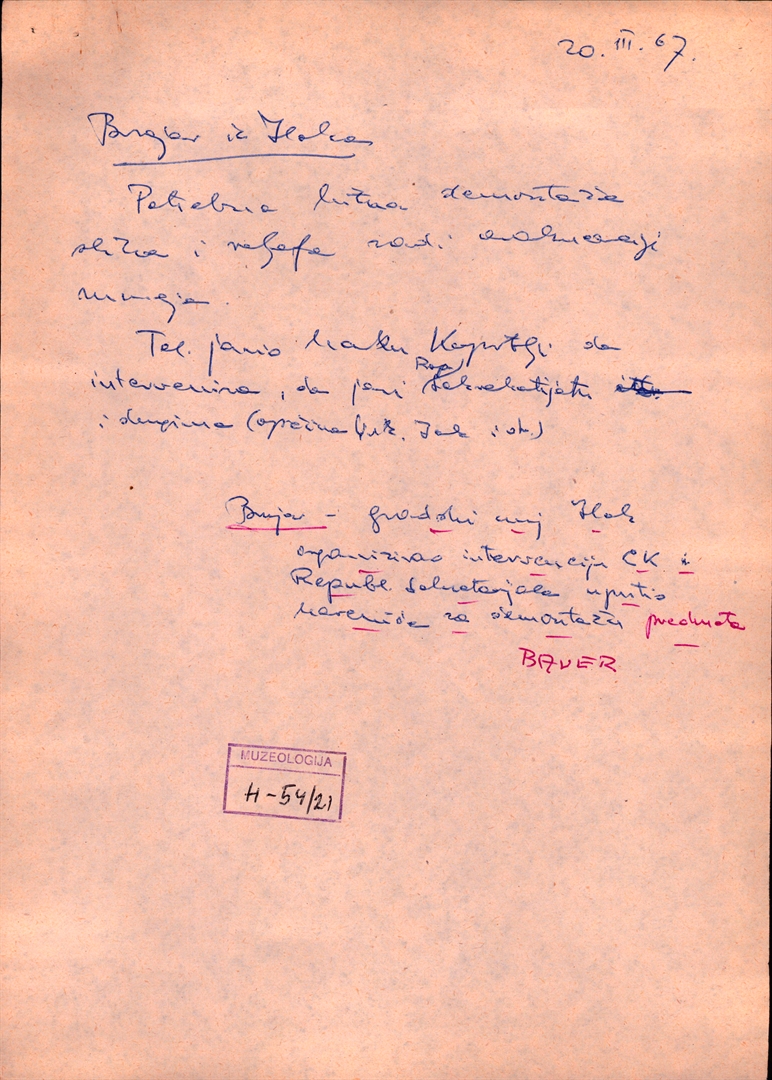 20. III. 67.
Brajer iz Iloka
Potrebna hitna demontaža
slika i reljefa radi
muzeja.
Tel. javio da
Rep.
intervenira, da javi Sekretarijatu
i drugima (općina Ilok i dr.)
Brajer - gradski muz Ilok
organizirao intervencije CK i
Republ. Sekretarijata uputio
za demontažu predmeta
BAUER
MUZEOLOGIJA
H-54/21